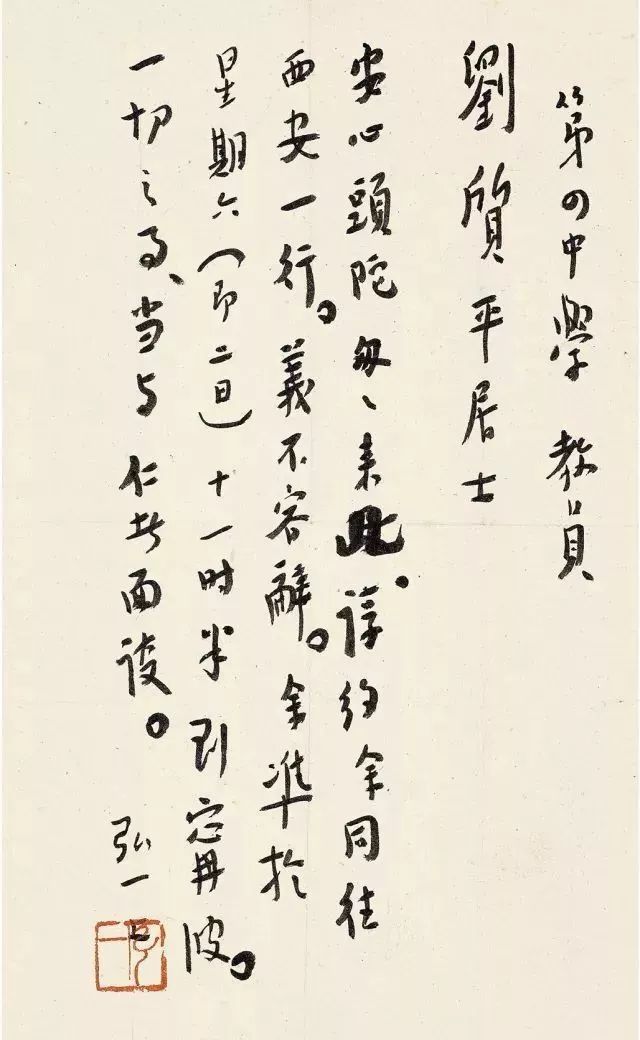 第四中學 教員
劉質平居士
安心頭陀匆〻来此。諄約余同往
西安一行。義不容辭。余準於
星期六（即二日）十一时半到甯波。
一切之事、当与仁者面談。
弘一